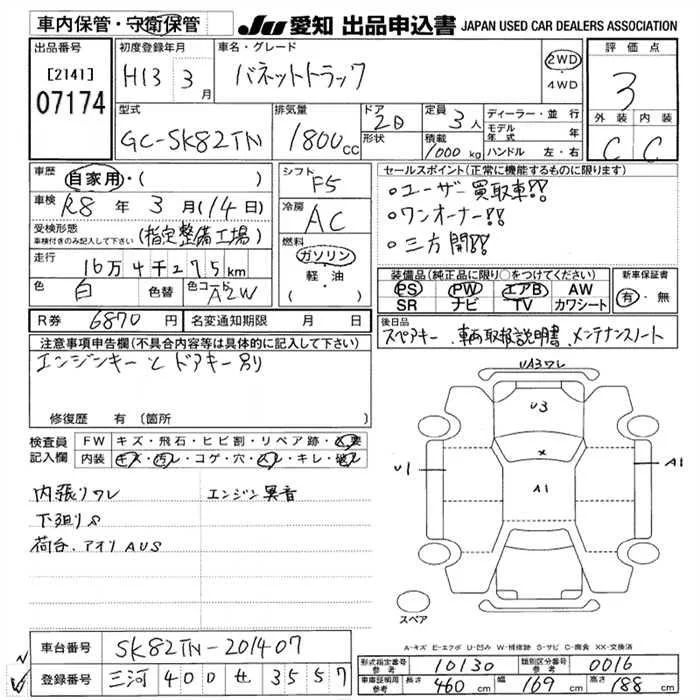 車内保管・守衛保管
JU 愛知 出品申込書 JAPAN USED CAR DEALERS ASSOCIATION
出品番号
[2141]
07174
初度登録年月
H13 3月
車名・グレード
バネットトラック
2WD
・4WD
評価点
3
外装 内装
C C
型式
GC-SK82TN
排気量
1800cc
ドア
2D
形状
定員
3人
積載
1000kg
ディーラー・並行
モデル年式 年
ハンドル 左・右
車歴
自家用・( )
車検 R8年3月(14日)
受検形態
車検付きのみ記入して下さい
(指定整備工場)
走行
16万4千275km
色 白 色替 色コード A2W
シフト
F5
冷房
AC
燃料
ガソリン
軽・油
( )
セールスポイント(正常に機能するものに限ります)
○ユーザー買取車!!
○ワンオーナー!!
○三方開!!
装備品(純正品に限り○をつけてください)
PS PW エアB AW
SR ナビ TV カワシート
新車保証書
有・無
R券 6870円 名変通知期限 月 日
後日品
スペアキー、車両取扱説明書、メンテナンスノート
注意事項申告欄(不具合内容等は具体的に記入して下さい)
エンジンキーとドアキー別り
修復歴 有(箇所 )
検査員記入欄
FW キズ・飛石・ヒビ割・リペア跡・
内装 キズ・汚レ・コゲ・穴・・キレ・破レ
内張りワレ エンジン異音
下廻りS
荷台、アオリAUS
UA3ワレ
U3
×
U1
A1
A1
スペア
A-キズ E-エクボ U-凹み W-補修跡 S-サビ C-腐食 XX-交換済
車台番号 SK82TN-201407
登録番号 三河 400 せ 3557
形式指定番号 参考 10130 類別区分番号 参考 0016
車庫証明用 参考 長さ 460cm 幅 169cm 高さ 188cm